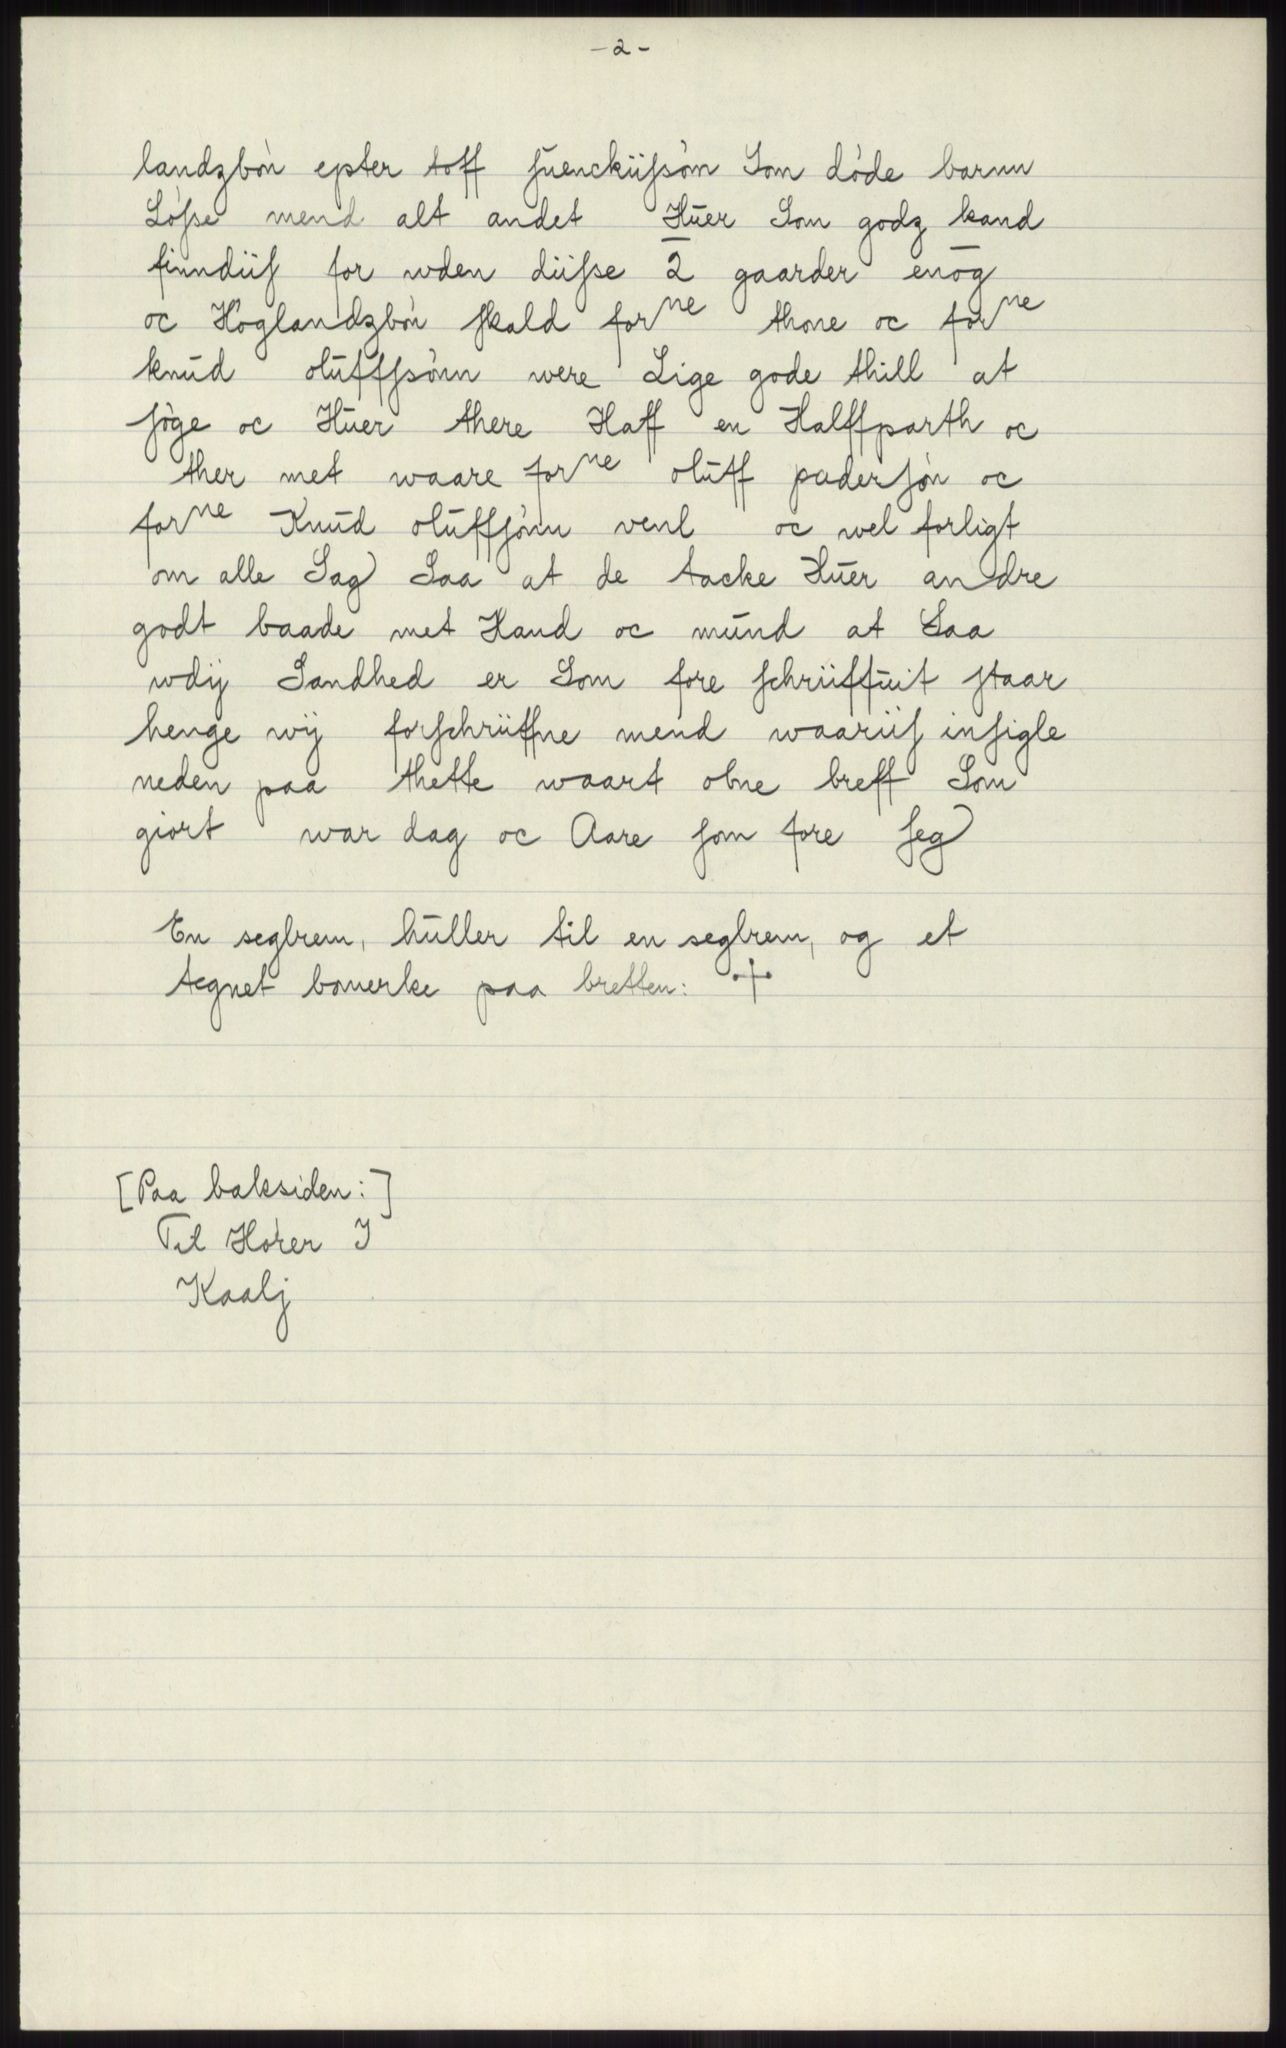 - 2 -
landzbón epter toff ſuenckiiſsón Som dóde barnn
Lóſse mend alt andet Huer Som godz kand
finndiiſ for wden diiſse 2 gaarder enog
oc Hóglandzbón ſkald forne thore oc forne
knud oluffſsónn were Lige gode thill at
ſóge oc Huer there Haff en Halffparth oc
ther met waare forne oluff pæderſón oc
forne Knud oluffſónn venl oc wel forligt
om alle Sag Saa at de tacke Huer andre
godt baade met Hand oc mund at Saa
wdij Sandhed er Som fore ſchriiffuit ſtaar
henge wij forſchriiffne mend waariiſ inſigle
neden paa thette waart obne breff Som
giort war dag oc Aare ſom fore ſeg
En seglrem, huller til en seglrem, og et
tegnet bomerke paa bretten: +
[Paa baksiden:]
Til Hórer I
Kaalj